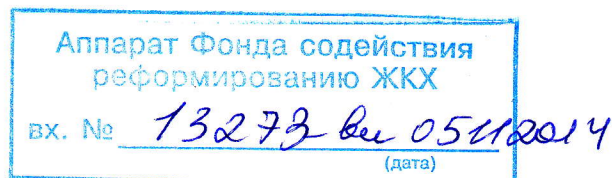 Аппарат Фонда содействия
реформированию ЖКХ
вх. № 13273 вн 05112014
(дата)